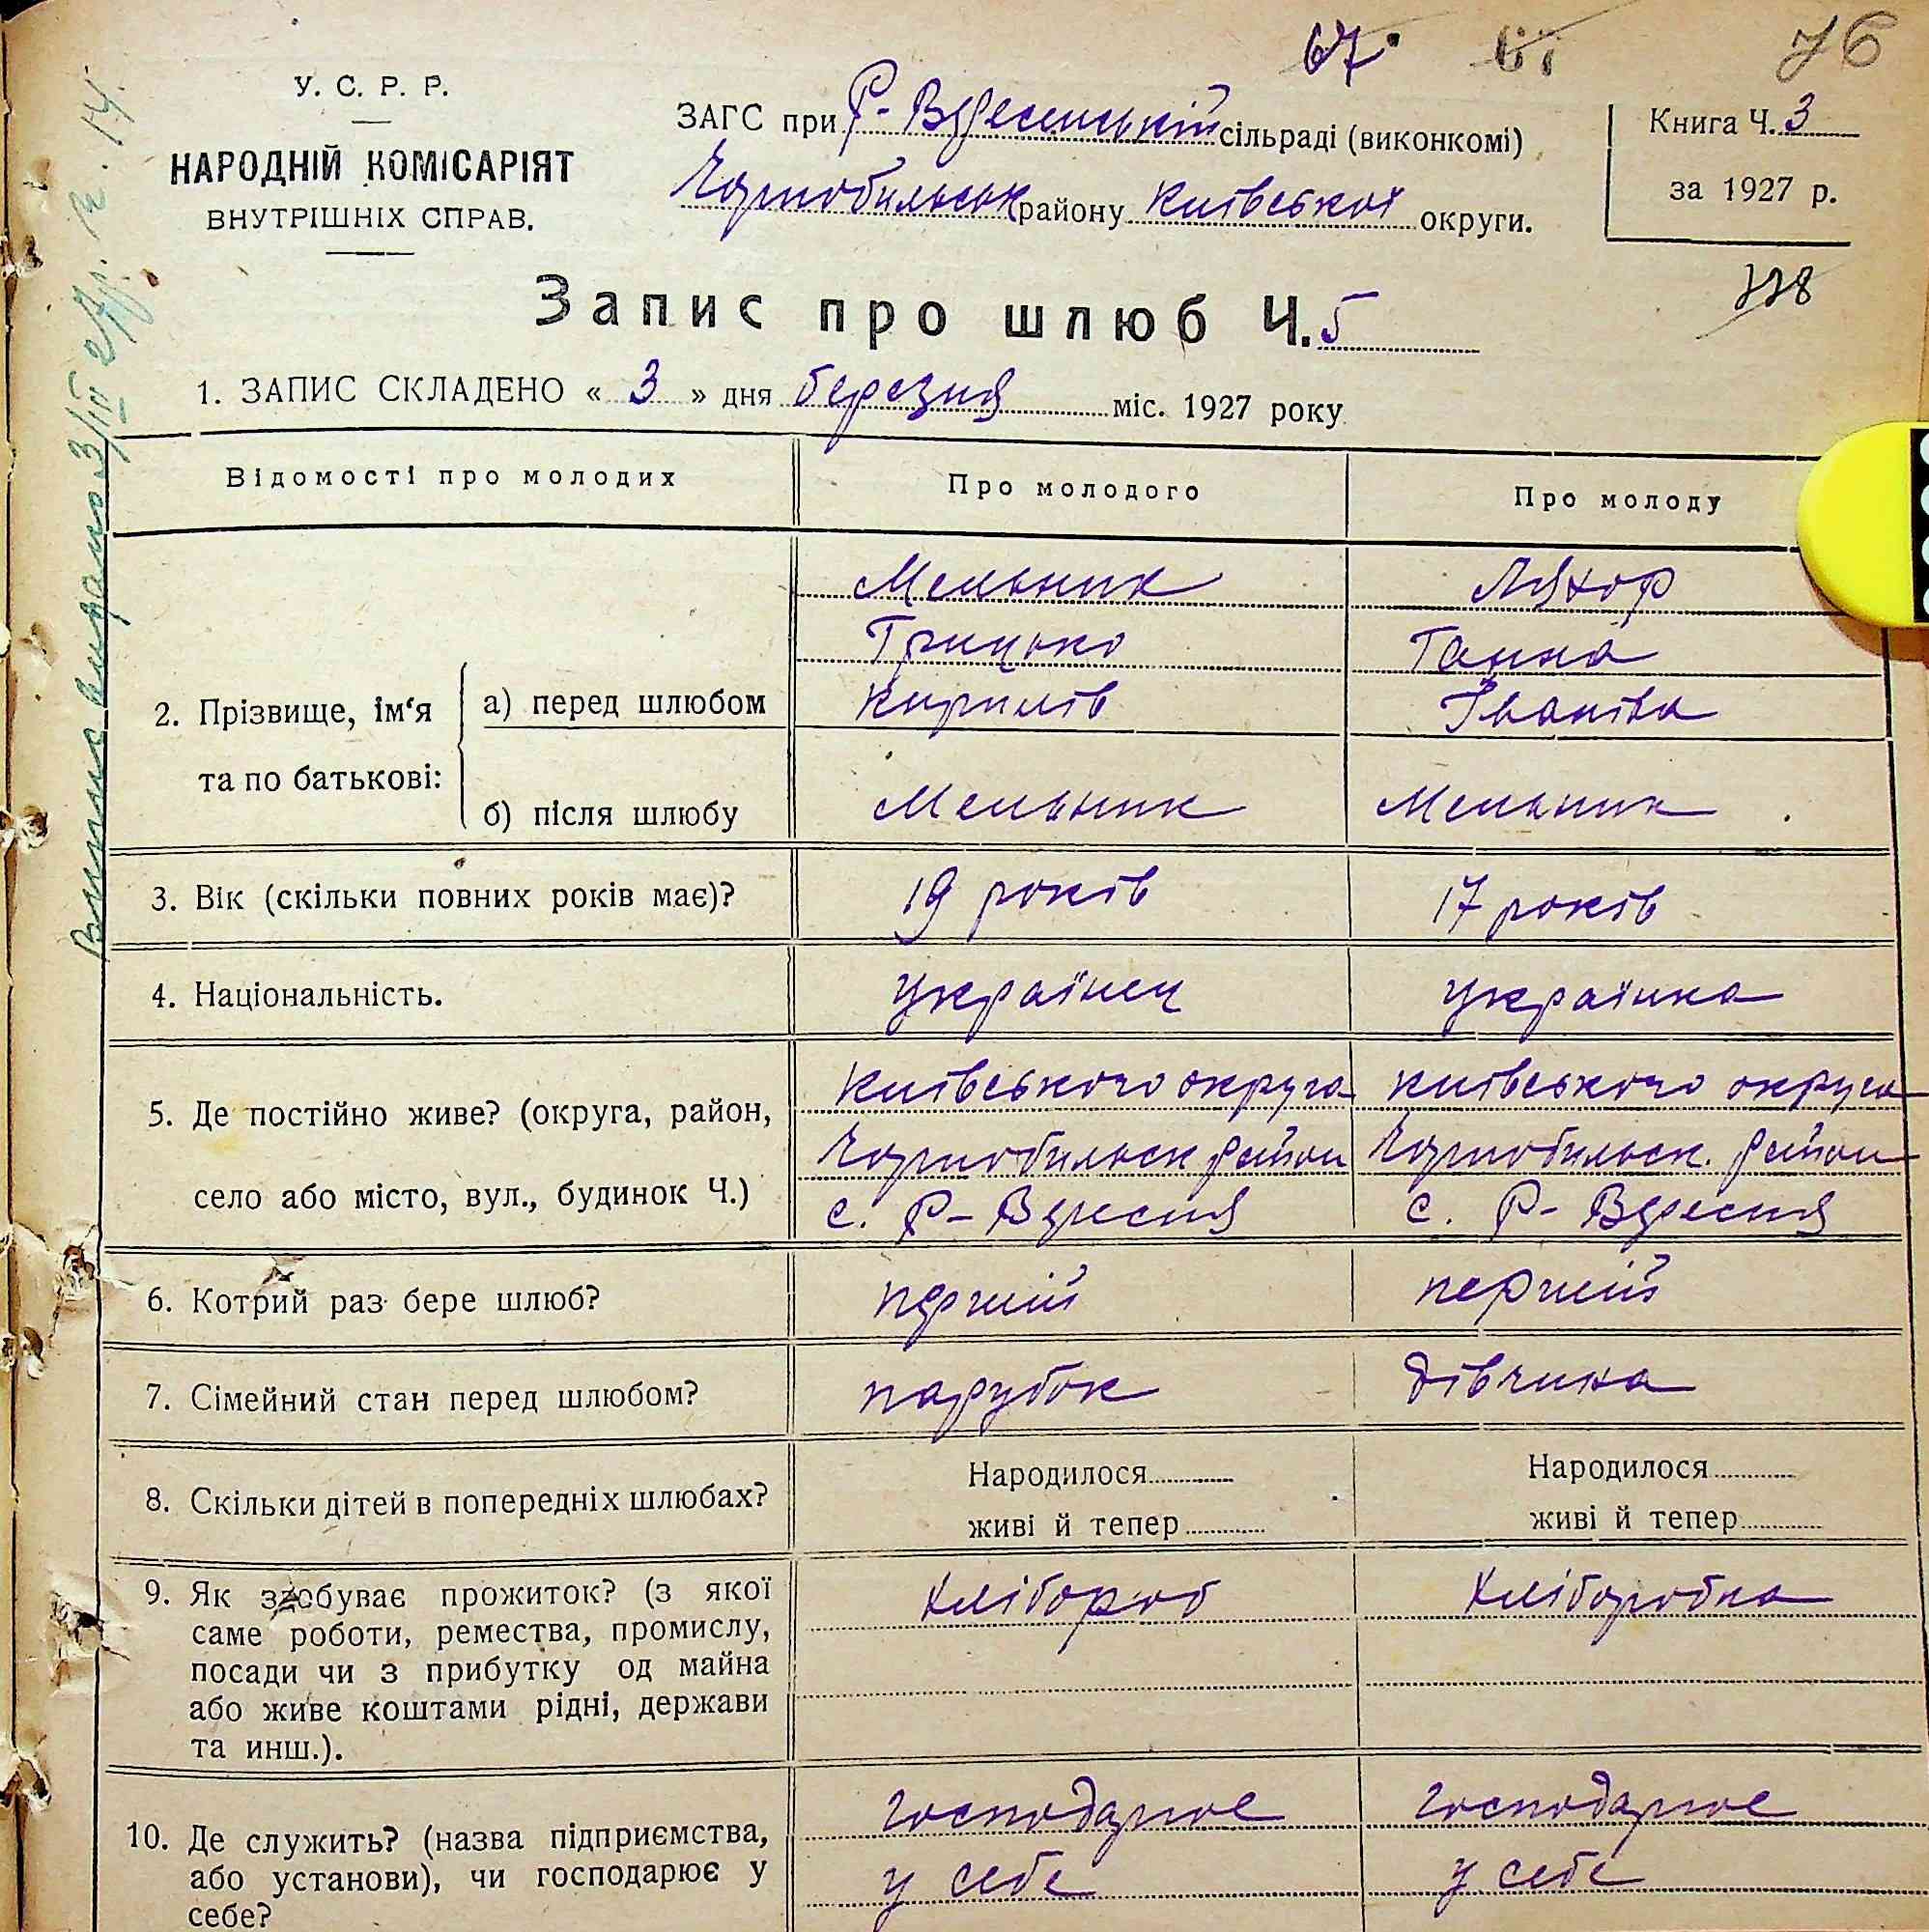 67. 61 76
У. С. Р. Р.
НАРОДНІЙ КОМІСАРІЯТ
ВНУТРІШНІХ СПРАВ.
ЗАГС при Р-Вересенській сільраді (виконкомі)
Чорнобильськ району Київської округи.
Книга Ч. 3
за 1927 р.
Запис про шлюб Ч. 5
1. ЗАПИС СКЛАДЕНО « 3 » дня березня міс. 1927 року
Відомості про молодих Про молодого Про молоду
2. Прізвище, ім‘я та по батькові:
а) перед шлюбом
Мельник Ляхор
Грицько Ганна
Кирилів Іванівна
б) після шлюбу Мельник Мельник
3. Вік (скільки повних років має)? 19 років 17 років
4. Національність. Українец Українка
5. Де постійно живе? (округа, район,
село або місто, вул., будинок Ч.)
Київського округа Київського округа
Чорнобильск район Чорнобильск. район
с. Р-Вересня с. Р-Вересня
6. Котрий раз бере шлюб? першій першій
7. Сімейний стан перед шлюбом? парубок дівчина
8. Скільки дітей в попередніх шлюбах? Народилося Народилося
живі й тепер живі й тепер
9. Як здобуває прожиток? (з якої Хлібороб Хліборобка
саме роботи, ремества, промислу,
посади чи з прибутку од майна
або живе коштами рідні, держави
та инш.).
10. Де служить? (назва підприємства, господарює господарює
або установи), чи господарює у у себе у себе
себе?